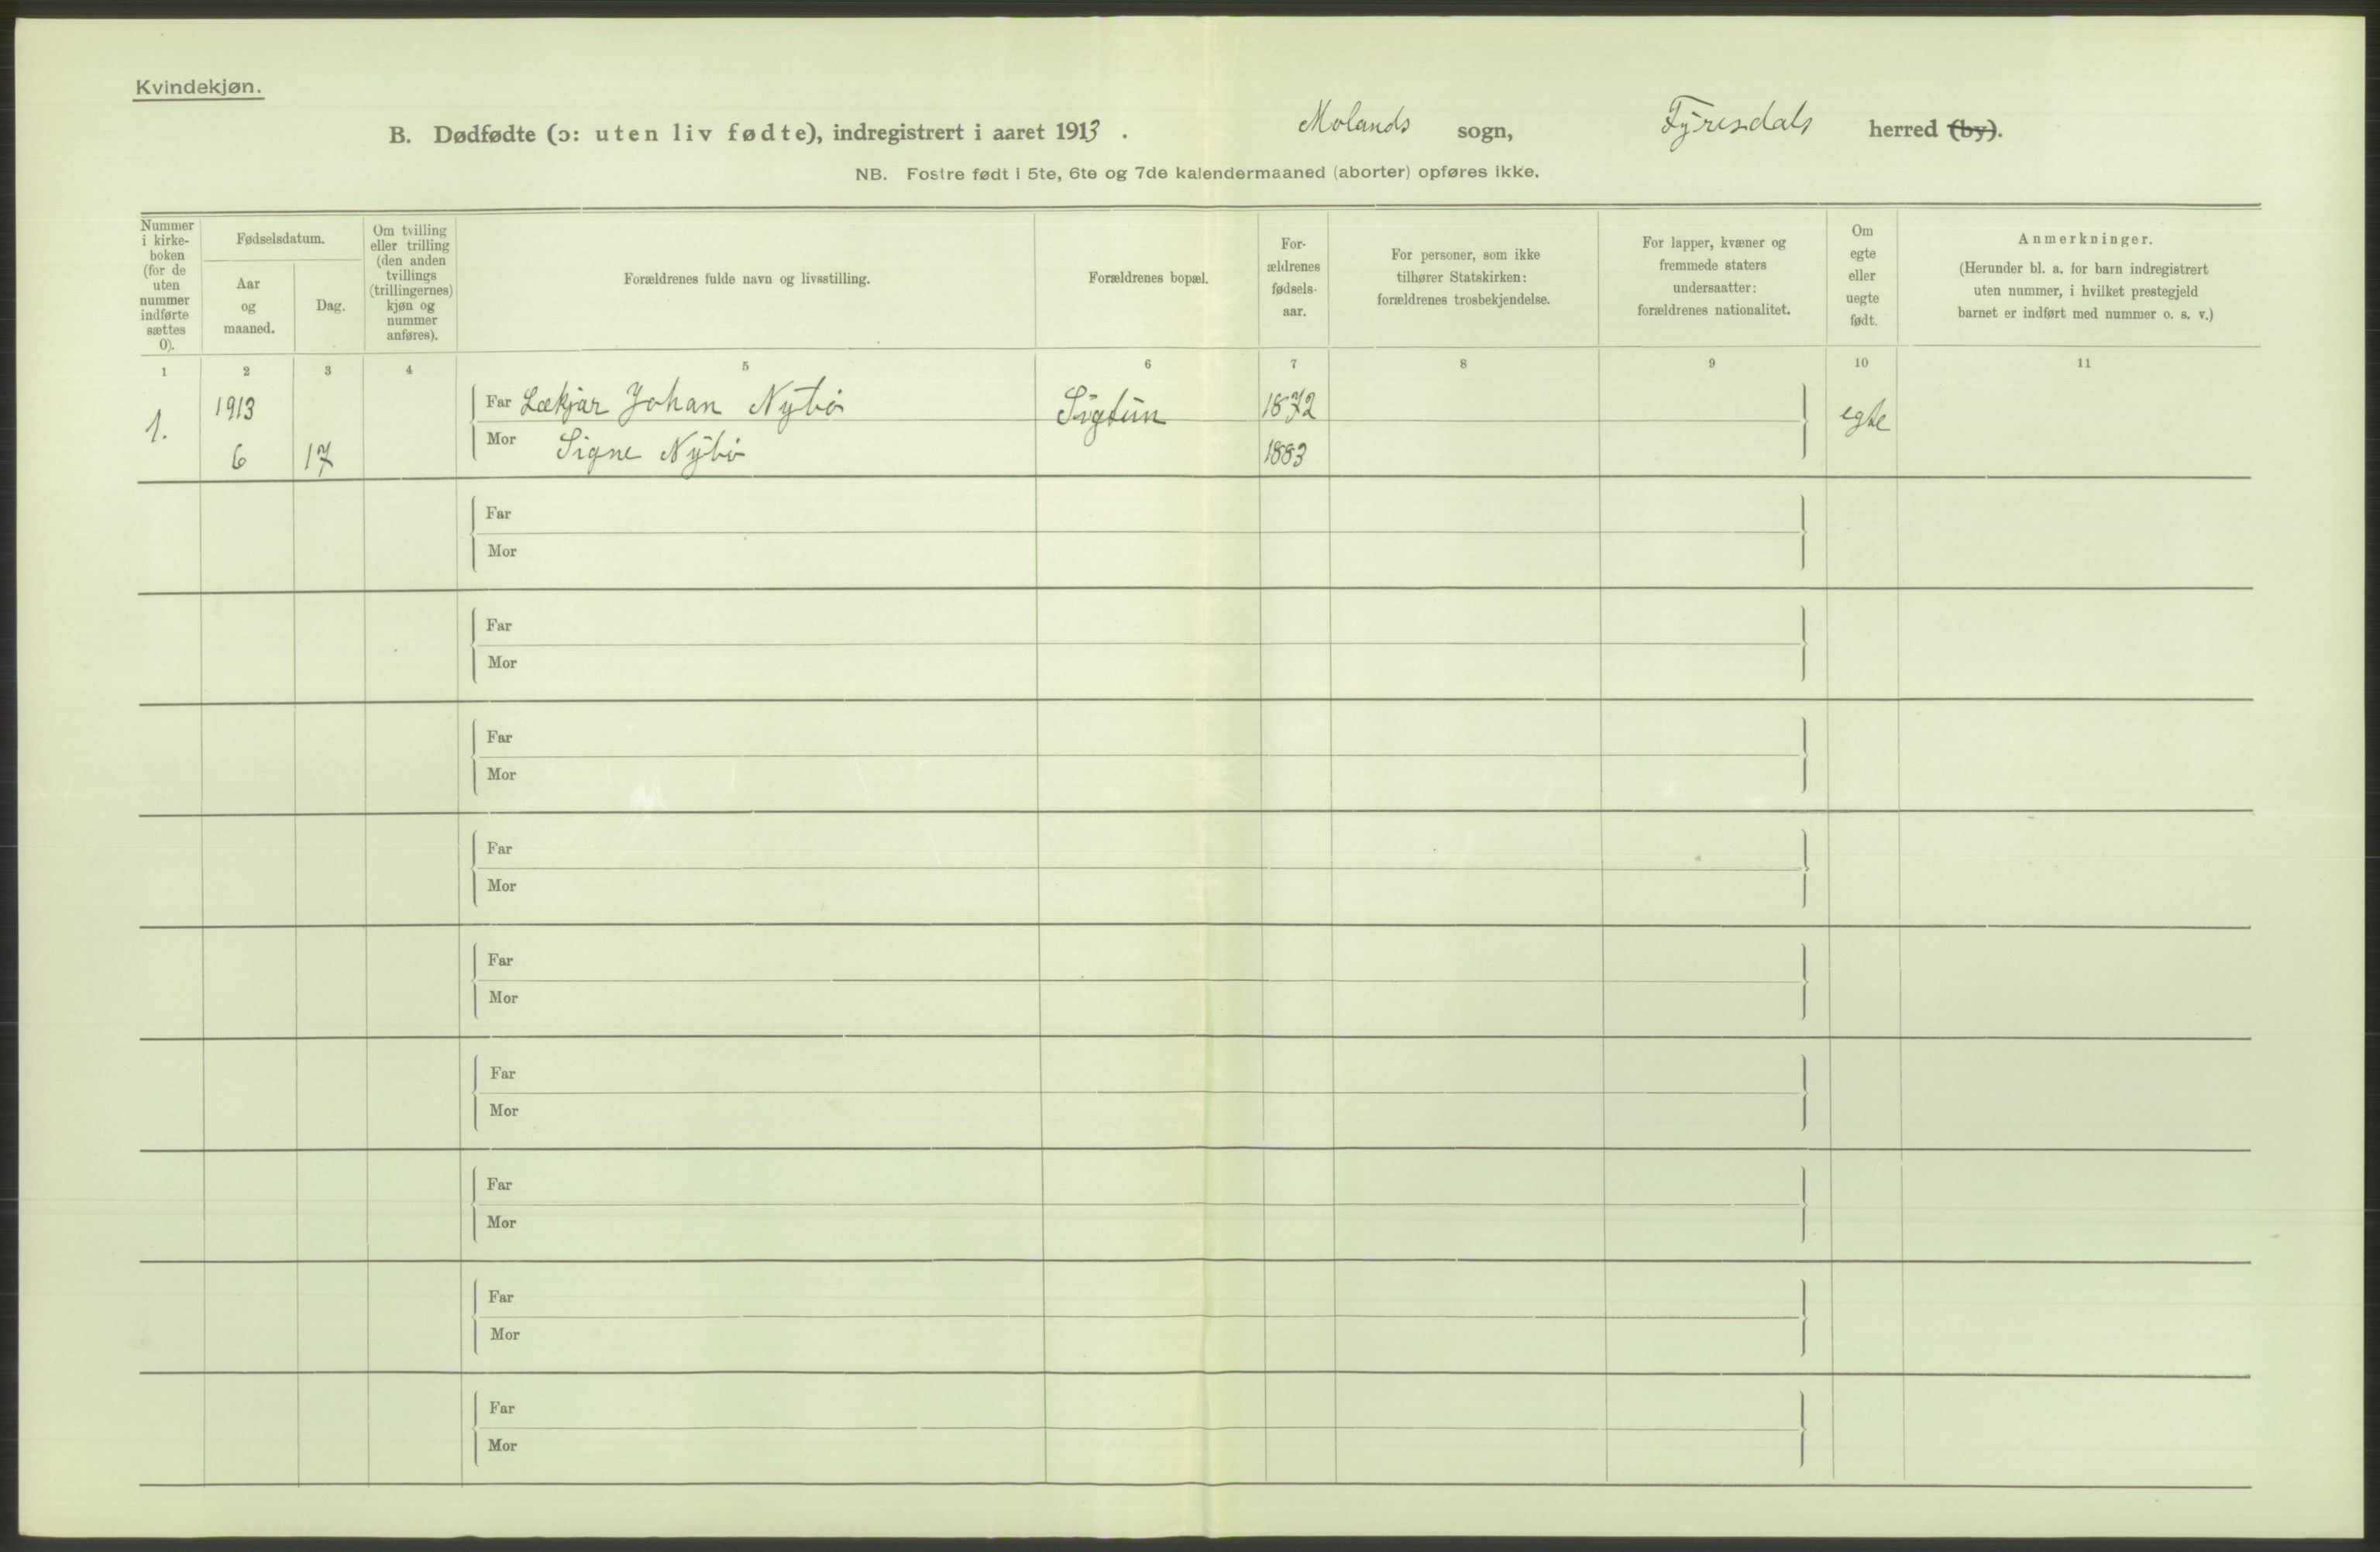 Kvindekjøn.
B. Dødfødte (ɔ: uten liv fødte), indregistrert i aaret 1913. Molands sogn, Fyresdals herred (by).
NB. Fostre født i 5te, 6te og 7de kalendermaaned (aborter) opføres ikke.
Nummer i kirke-boken (for de uten nummer indførte sættes 0).
Fødselsdatum.
Aar og maaned.
Dag.
Om tvilling eller trilling (den anden tvillings (trillingernes) kjøn og nummer anføres).
Forældrenes fulde navn og livsstilling.
Forældrenes bopæl.
For-ældrenes fødsels-aar.
For personer, som ikke tilhører Statskirken: forældrenes trosbekjendelse.
For lapper, kvæner og fremmede staters undersaatter: forældrenes nationalitet.
Om egte eller uegte født.
Anmerkninger.
(Herunder bl. a. for barn indregistrert uten nummer, i hvilket prestegjeld barnet er indført med nummer o. s. v.)
1 2 3 4 5 6 7 8 9 10 11
1. 1913 Far Lækjar Johan Nybø Sigtun 1872 egte
6 17 Mor Signe Nybø 1883
Far
Mor
Far
Mor
Far
Mor
Far
Mor
Far
Mor
Far
Mor
Far
Mor
Far
Mor
Far
Mor